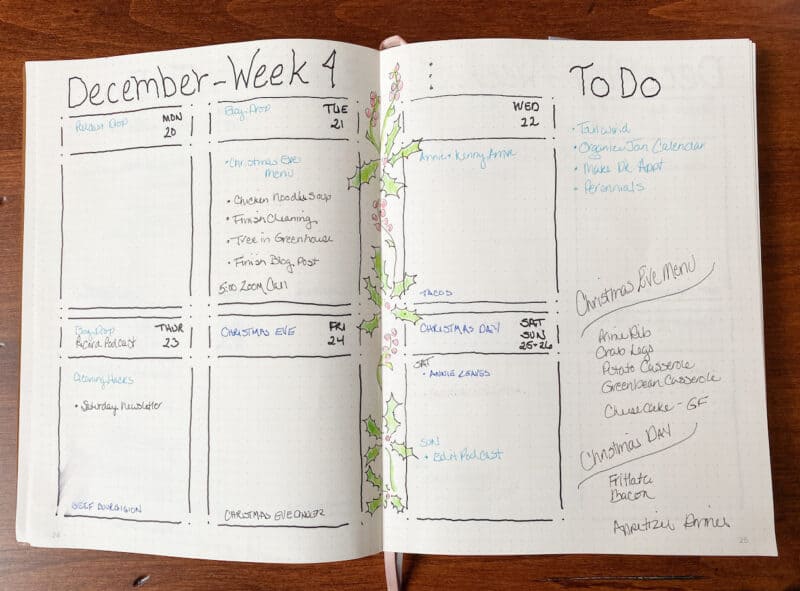 December - Week 4
MON
20
Podcast Drop
TUE
21
Blog Drop
• Christmas Eve
Menu
• Chicken Noodle Soup
• Finish Cleaning
• Tree in Greenhouse
• Finish Blog Post
5:00 Zoom Call
Blog Drop
Record Podcast
THUR
23
Cleaning Hacks
• Saturday Newsletter
BEEF
CHRISTMAS EVE
FRI
24
CHRISTMAS EVE DINNER
WED
22
Annie + Kenny Arrive
TACOS
CHRISTMAS DAY
SAT
SUN
25-26
SAT
• ANNIE LEAVES
SUN
• Edit Podcast
To Do
• Tailwind
• Organize Jan Calendar
• Make Dr. Appt
• Perennials
Christmas Eve Menu
Prime Rib
Crab Legs
Potato Casserole
Greenbean Casserole
Cheesecake - GF
Christmas DAY
Frittata
Bacon
Appetizer Dinner
24
25